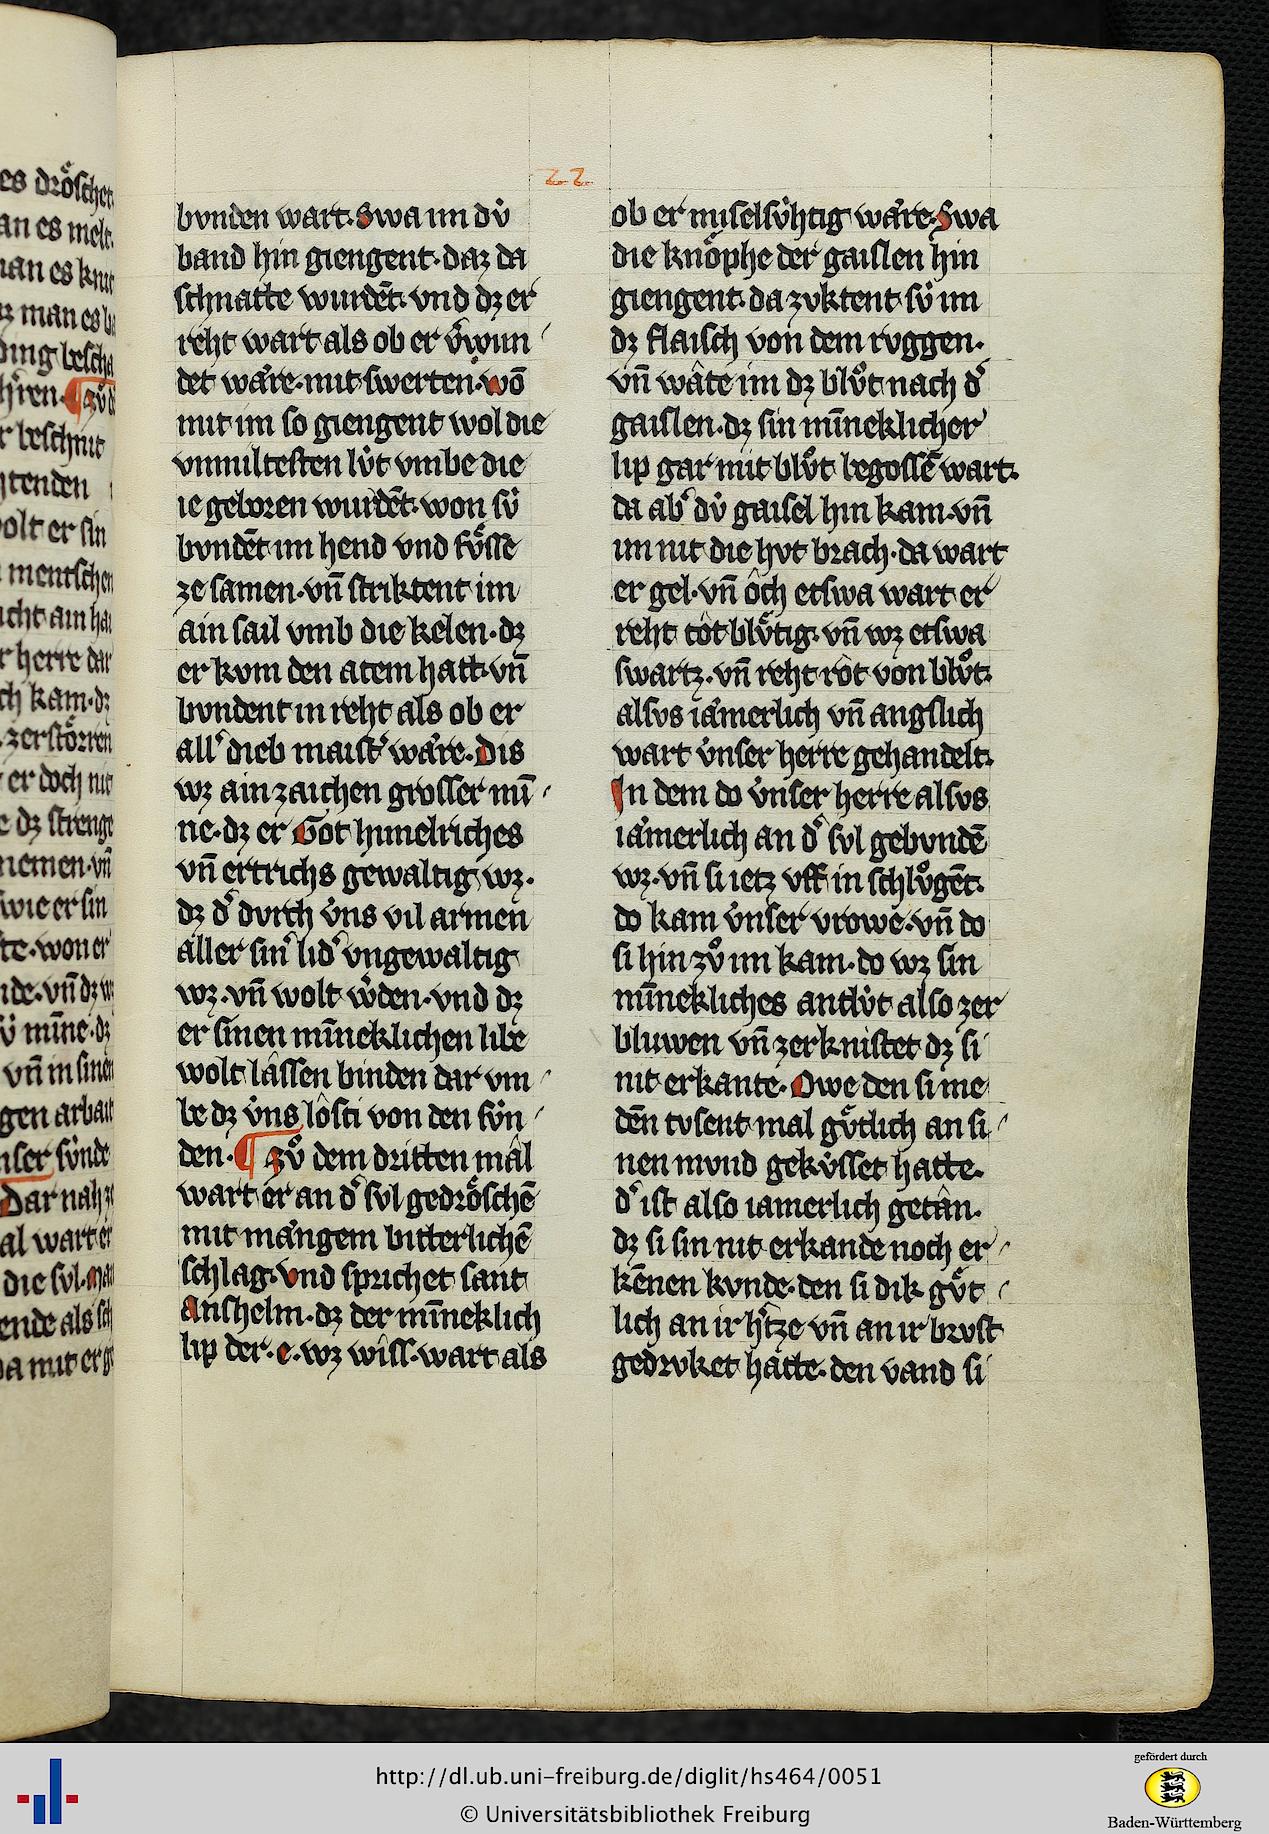 22
bvnden wart. Swa im dv̓
band hin giengent. daz da
schnatte wurdēt. vnd dz er
reht wart als ob er v̓wun
det wa̓re. mit swerten. wō
mit im so giengent wol die
vnmiltesten lv̓t vmbe die
ie geboren wurdēt. won sv̓
bvndēt im hend vnd fv̊sse
ze samen. vn̄ striktent im
ain sail vmb die kelen. dz
er kvm den atem hatt. vn̄
bvndent in reht als ob er
all͛ dieb maist͛ wa̓re. Dis
wz ain zaichen grosser mī
ne. dz er Got himelriches
vn̄ ertrichs gewaltig wz.
dz d͛ dvrch v̓ns vil armen
aller sin͛ lid͛ vngewaltig
wz. vn̄ wolt w͛den. vnd dz
er sinen mīneklichen libe
wolt lâssen binden dar vm
be dz v̓ns lôsti von den sv̓n
den. ¶ zv̊ dem dritten mâl
wart er an d͛ svl gedrôschē
mit ma̓ngem bitterlichē
schlag. vnd sprichet sant
Anshelm. dz der mīneklich
lip der. e. wz wîss. wart als
ob er miselsv̓htig wa̓re. Swa
die knôphe der gaislen hin
giengent. da zvktent sv̓ im
dz flaisch von dem rvggen.
vn̄ wâte im dz blv̊t nach d͛
gaislen. dz sin mīneklicher
lip gar mit blv̊t begossē wart.
da ab͛ dv̓ gaisel hin kam. vn̄
im nit die hvt brach. da wart
er gel. vn̄ ôch etswa wart er
reht tôt blv̊tig. vn̄ wz etswa
swartz. vn̄ reht rôt von blv̊t.
alsvs ia̓merlich vn̄ angslich
wart v̓nser herre gehandelt.
In dem do v̓nser herre alsvs
ia̓merlich an d͛ svl gebvndē
wz. vn̄ si ietz vff in schlv̊gēt.
do kam v̓nser vrowe. vn̄ do
si hin zv̊ im kam. do wz sin
mīnekliches antlv̓t also zer
bluwen vn̄ zerknistet dz si
nit erkante. Owe den si me
dēn tvsent mal gv̊tlich an si
nen mvnd gekv̓sset hatte.
d͛ ist also iamerlich getân.
dz si sin nit erkande noch er
kēnen kvnde. den si dik gv̊t
lich an ir h͛tze vn̄ an ir brvst
gedrvket hatte. den vand si
http://dl.ub.uni-freiburg.de/diglit/hs464/0051
© Universitätsbibliothek Freiburg
gefördert durch
Baden-Württemberg